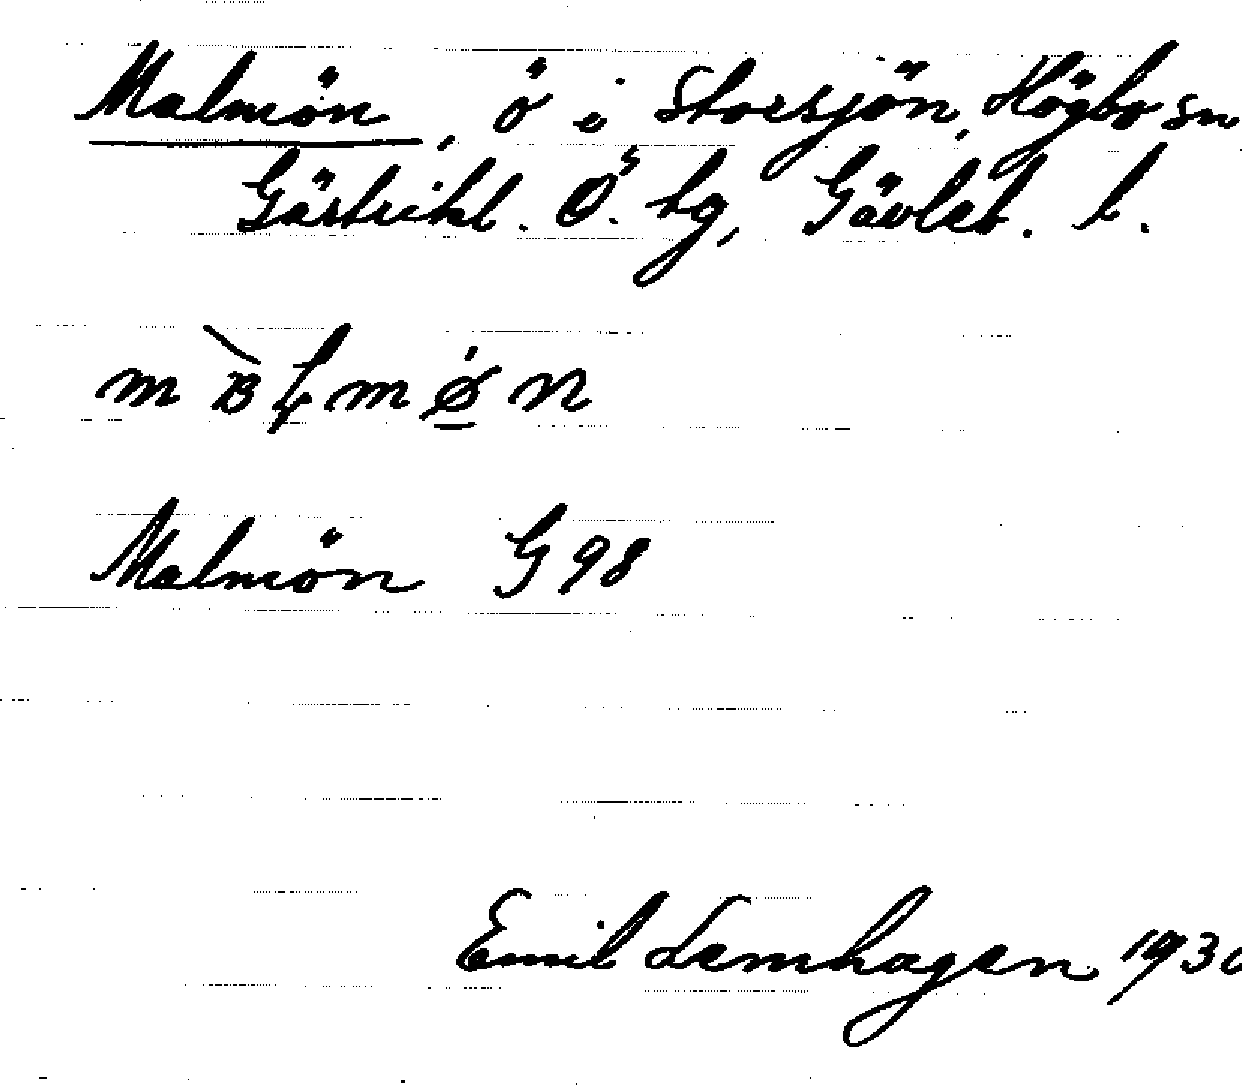 Malmön, ö i Storsjön, Högbo sn
Gästrikl. Ö. tg, Gävleb. l.
Malmön G 98
Emil Lemhagen 1930